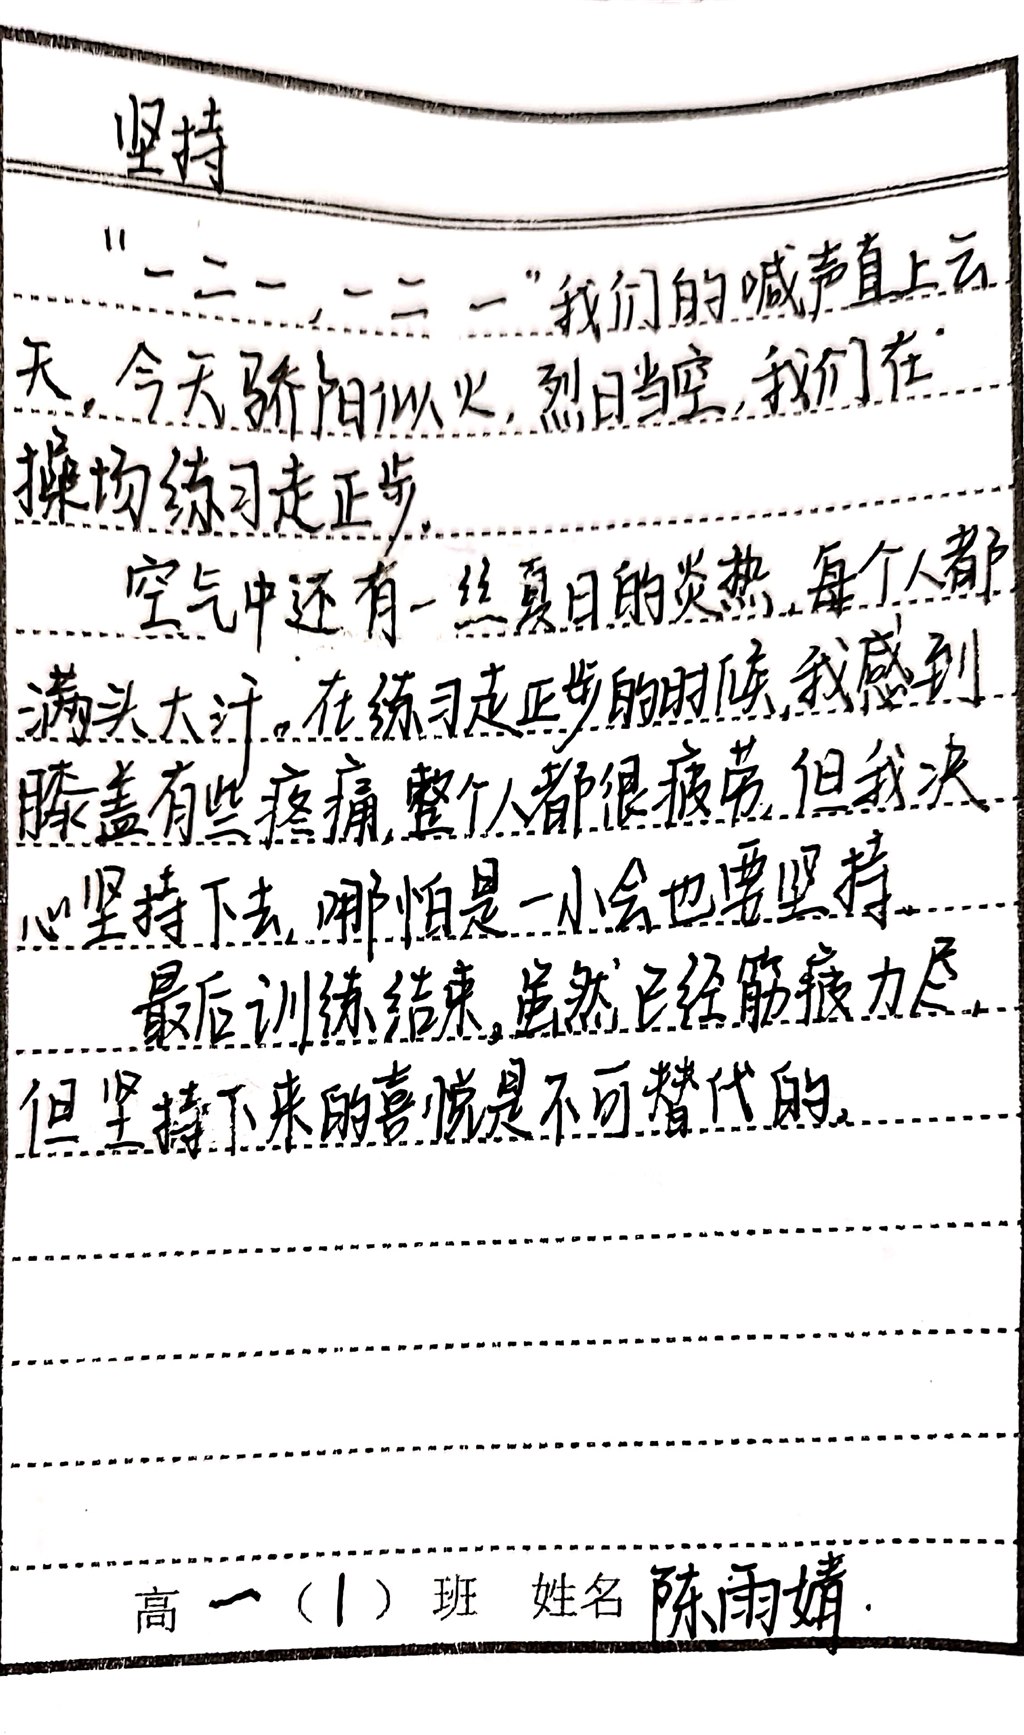 坚持
“一二一,一二一”我们的喊声直上云
天。今天骄阳似火,烈日当空,我们在
操场练习走正步。
空气中还有一丝夏日的炎热,每个人都
满头大汗。在练习走正步的时候,我感到
膝盖有些疼痛,整个人都很疲劳,但我决
心坚持下去,哪怕是一小会也要坚持。
最后训练结束,虽然已经筋疲力尽,
但坚持下来的喜悦是不可替代的。
高一(1)班 姓名 陈雨婧.